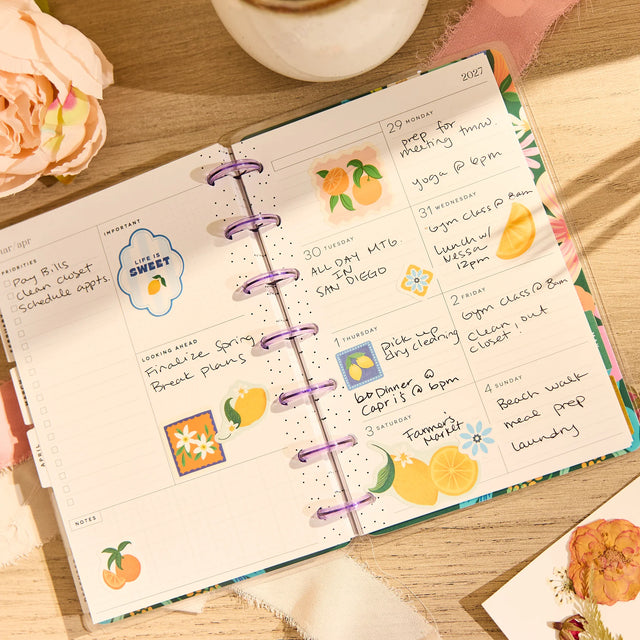 mar/apr
PRIORITIES
Pay Bills
clean closet
schedule appts.
IMPORTANT
LIFE IS
SWEET
LOOKING AHEAD
Finalize Spring
Break plans
NOTES
APRIL
2027
29 MONDAY
prep for
meeting tmrw.
yoga @ 6pm
30 TUESDAY
ALL DAY MTG.
IN
SAN DIEGO
31 WEDNESDAY
Gym class @ 8am
Lunch w/
Kessa
12pm
1 THURSDAY
Pick up
dry cleaning
Dinner @
Capri's @ 6pm
2 FRIDAY
Gym class @ 8am
Clean out
closet!
3 SATURDAY
Farmer's
Market
4 SUNDAY
Beach walk
meal prep
laundry